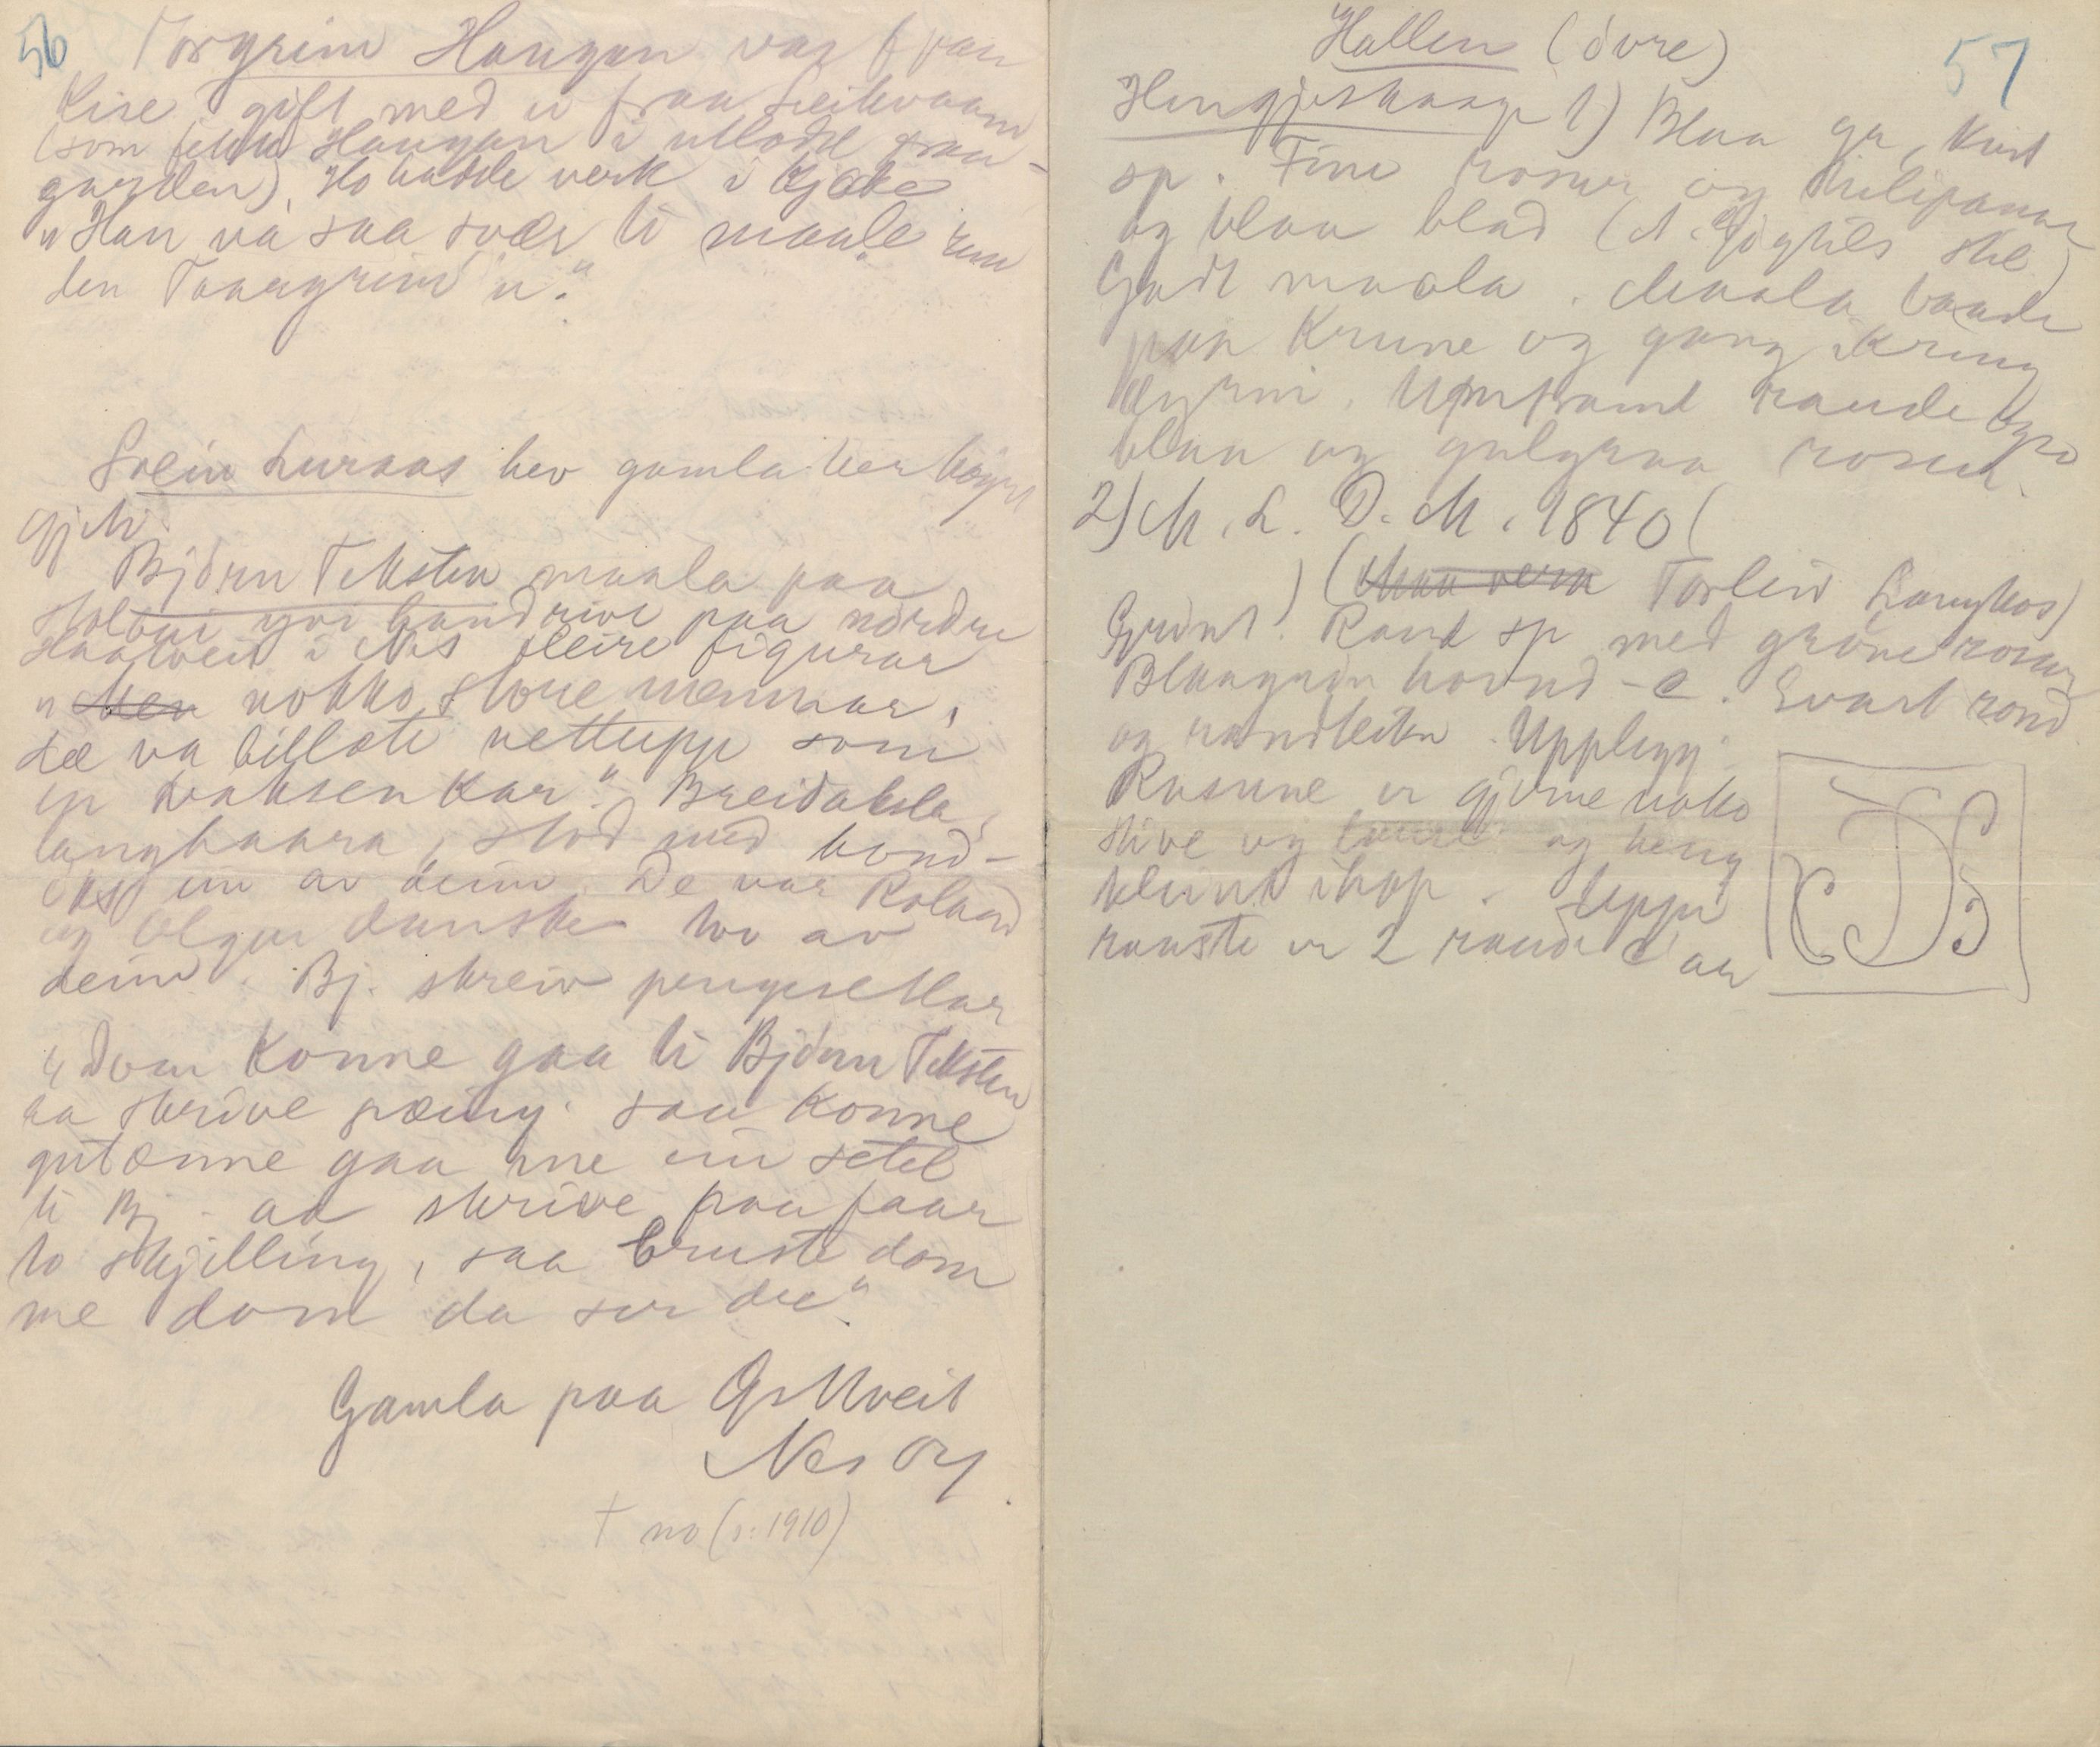 56
Torgrim Haugan var fraa
Kise gift med ei fraa Leikvaam
(som fekk Haugan i utlodd fraa
garden). Ho hadde verk i kjake
"Han va saa svær ti maale rau
den Taargrim'n."
Svein Luraas hev gamla her høyrt
gjete.
Bjørn Teksten maala paa
stoloni yvi handrive paa nørdre
Haatveit i Nes fleire figurar
" nokko store mennar,
dæ va billæte rettupp som
en vaksen kar." Breidaksla,
langhaara, stod med hond-
øks ein av deim. De var Roland
og Olger danske two av
deim. Bj. skreiv pengesetlar
"Dom konne gaa ti Bjørn Teksten
aa skrive pæing. saa konne
gutænne gaa me ein setel
ti Bj. aa skrive paa faar
to skjilling, saa bruste dom
me dom da ser du"
Gamla paa Grttveit
Nes Øy.
† no (ɔ: 1910)
57
Hallen (øvre)
Hengjeskaap 1) Blaa gr, kvit
sp. Fine rosur og tulipanar
og blaa blad (A. Gigstls stil)
Godt maala. Maala baade
paa krune og gang kring
dyrni. Uppframt raude
blaa og gulgraa rosur.
2) M. L. D. M. 1840 (
) (Maa vera Torleiv Langkos)
Grønt. Raud sp med grøne rosur
Blaagrøn hovud-C. Svart rond
og randleita. Upplegg.
Rosune er gjerne noko
stive og og heng
kleint ihop. Uppi
raaste er 2 raude C'ar